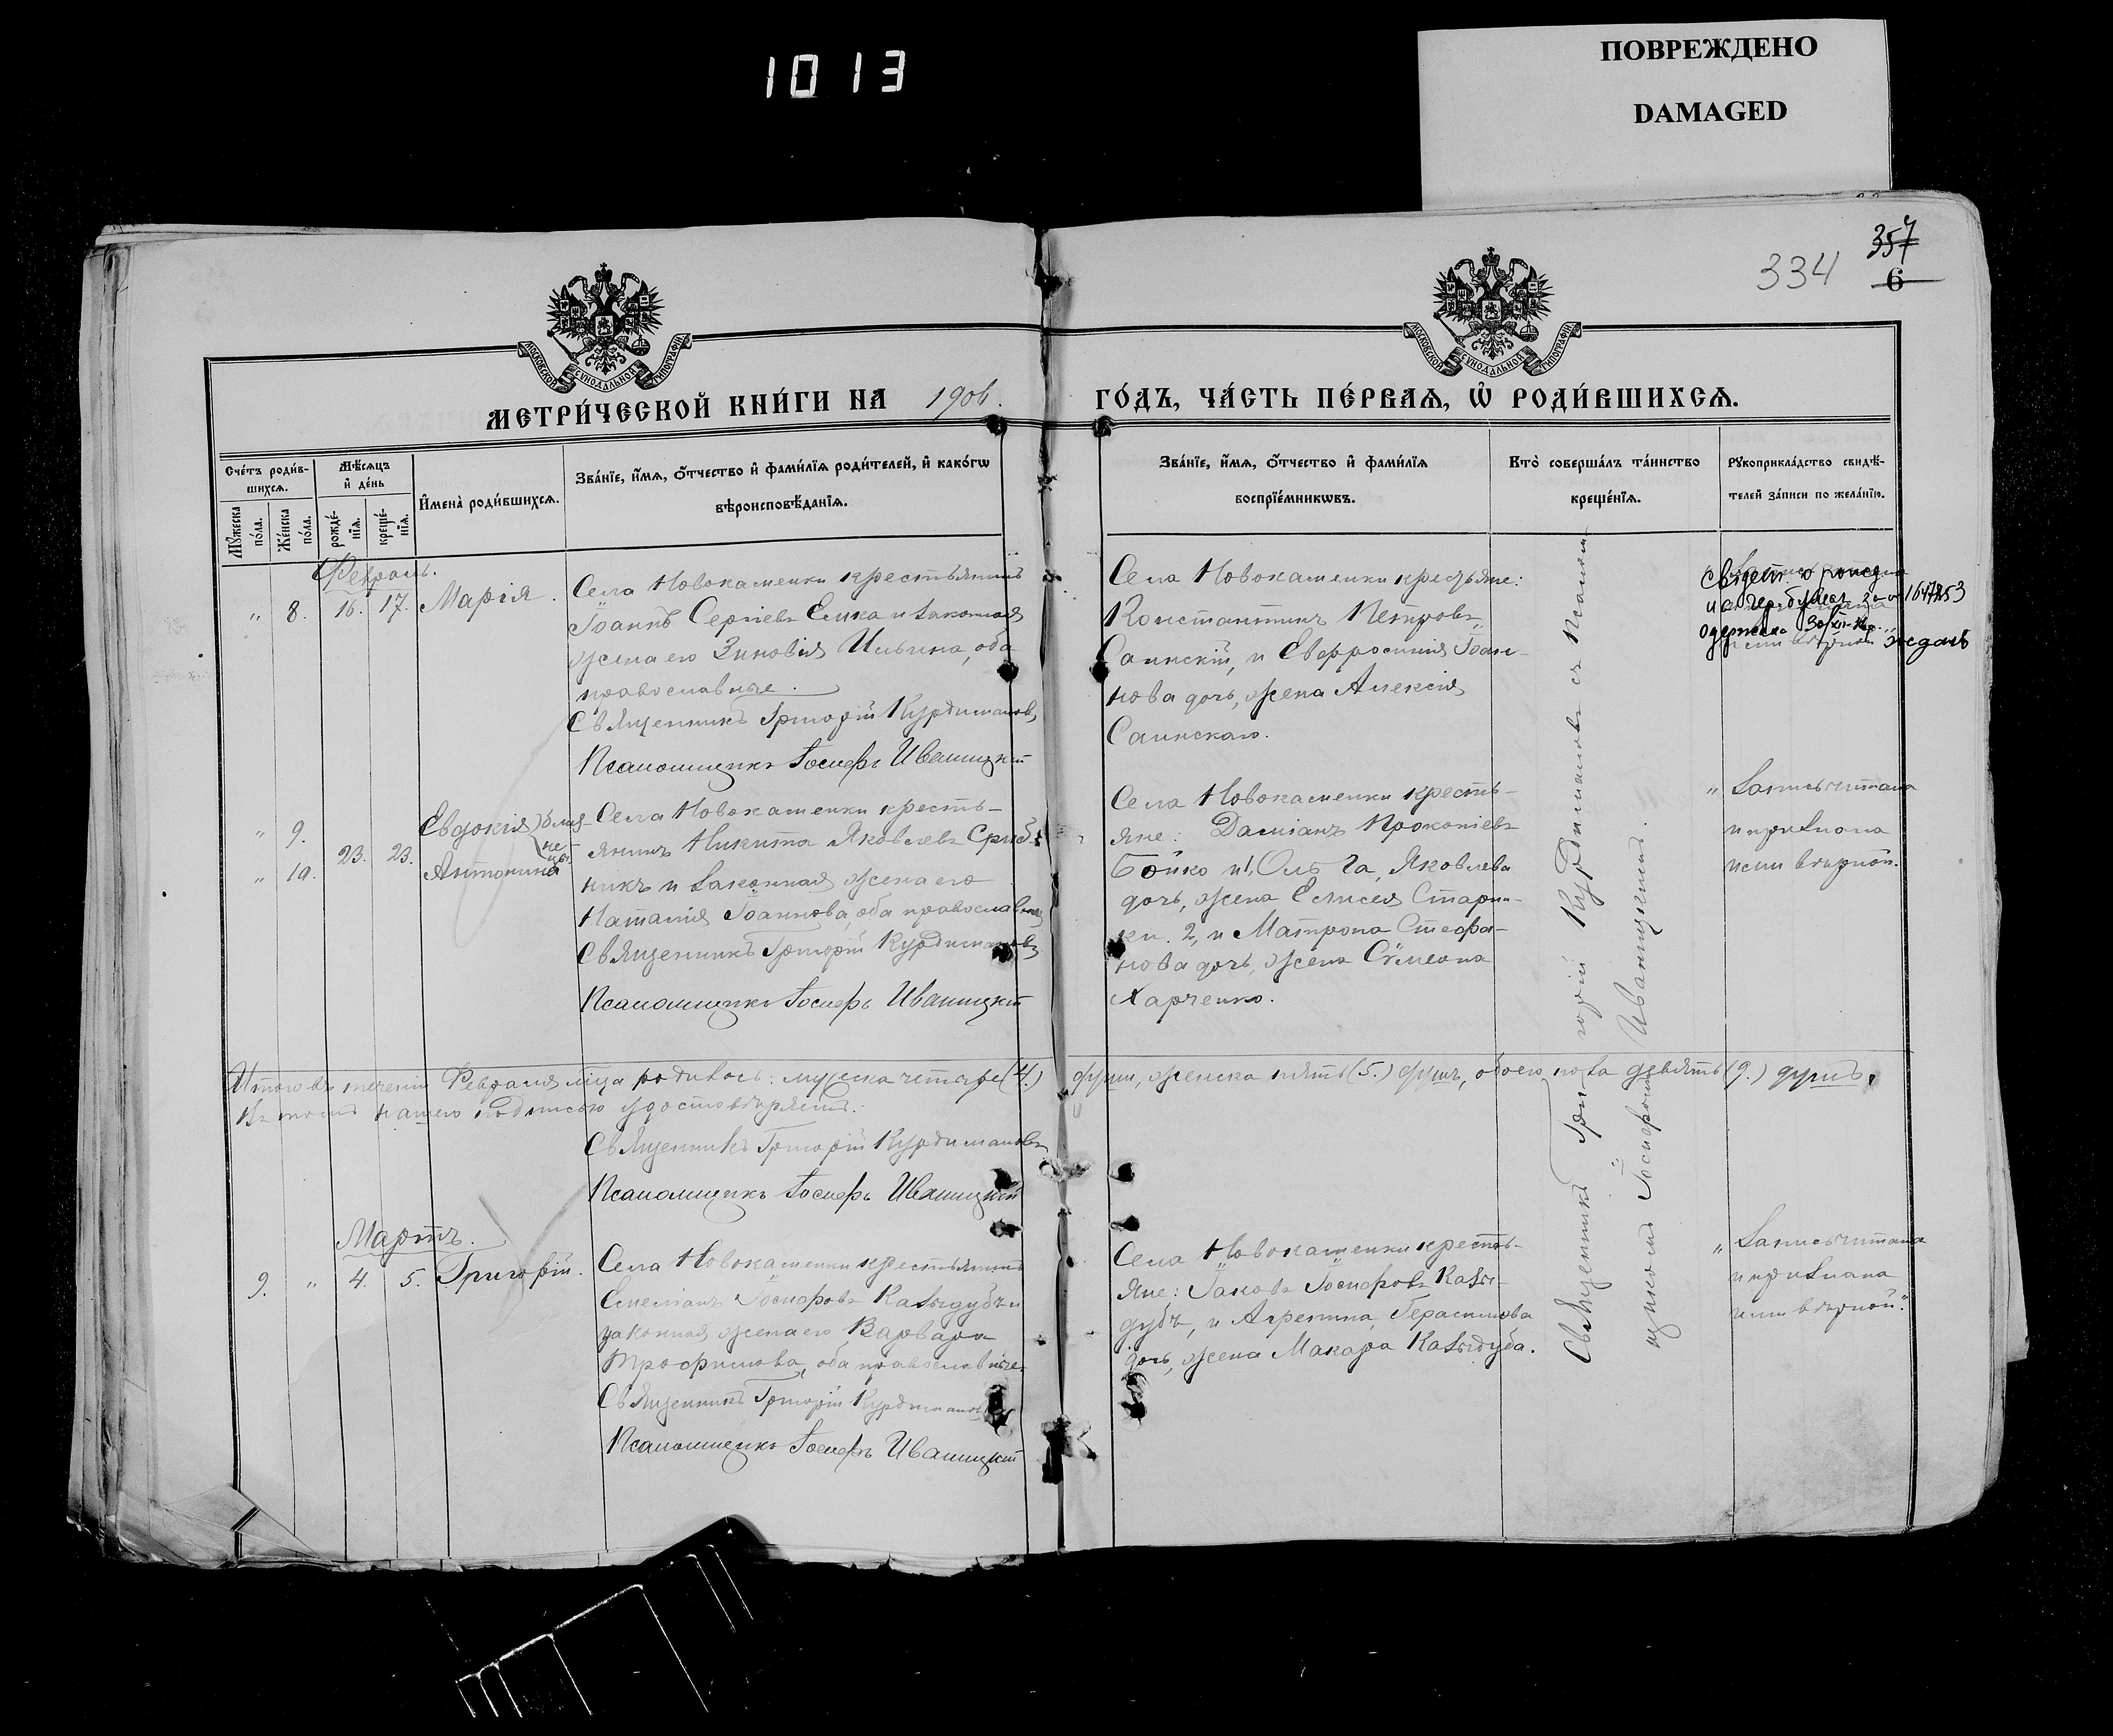 1013
ПОВРЕЖДЕНО
DAMAGED
334
357
6
МОСКОВСКОЙ СѴНОДАЛЬНОЙ ТИПОГРАФІИ
МОСКОВСКОЙ СѴНОДАЛЬНОЙ ТИПОГРАФІИ
МЕТРИ́ЧЕСКОЙ КНИ́ГИ НА 1906. ГО́ДЪ, ЧА́СТЬ ПЕ́РВАѦ, Ѽ РОДИ́ВШИХСѦ.
Сче́тъ роди́в-
шихсѧ.
Мꙋ́жеска по́ла.
Же́нска по́ла.
Мѣ́сѧцъ и҆ де́нь
рожде́-
нїѧ.
креще́-
нїѧ.
И҆мена̀ роди́вшихсѧ.
Зва́нїе, и҆́мѧ, ѻ҆́тчество и҆ фамі́лїѧ роди́телей, и҆ како́гѡ
вѣроисповѣ́данїѧ.
Зва́нїе, и҆́мѧ, ѻ҆́тчество и҆ фамі́лїѧ
воспрїе́мникѡвъ.
Кто̀ соверша́лъ та́инство
креще́нїѧ.
Рꙋкоприкла́дство свидѣ́-
телей за́писи по жела́нїю.
Февраль.
" 8. 16. 17. Марія.
Села Новокаменки крестьянинъ
Іоаннъ Сергіевъ Емка и законная
жена его Зиновія Ильина, оба
православные.
Священникъ Григорій Курдимановъ
Псаломщикъ Іосифъ Иваницкій
Села Новокаменки крестьяне:
Константинъ Петровъ
Саинскій, и Евфросинія Іоан-
нова дочь, жена Алексія
Саинскаго.
1647253
" 9. Евдокія } близ-
" 10. 23. 23. Антонина не-
цы
Села Новокаменки кресть-
янинъ Никита Яковлевъ Сриб-
никъ и законная жена его
Наталія Іоаннова, оба православные
Священникъ Григорій Курдимановъ
Псаломщикъ Іосифъ Иваницкій
Села Новокаменки кресть-
яне: Даміанъ Прокопіевъ
Бойко и Ольга Яковлева
дочь, жена Елисея Стари-
ки. 2, и Матрона Стефа-
нова дочь, жена Сѵмеона
Харченко.
" Запись читана
и признана
ими вѣрной."
Итого въ теченіи Февраля мѣсца родилось: мужеска четыре (4.) души, женска пять (5.) душъ, обоего пола девять (9.) душъ,
въ томъ нашею подписью удостовѣряемъ:
Священникъ Григорій Курдимановъ
Псаломщикъ Іосифъ Иваницкій
Мартъ.
9. " 4. 5. Григорій.
Села Новокаменки крестьянинъ
Емеліанъ Іосифовъ Казыдубъ и
законная жена его Варвара
Трофимова, оба православные
Священникъ Григорій Курдимановъ
Псаломщикъ Іосифъ Иваницкій
Села Новокаменки кресть-
яне: Іаковъ Іосифовъ Казы-
дубъ, и Агрепина Герасимова
дочь, жена Макара Казыдуба.
Священникъ Григорій Курдимановъ съ Псалом-
щикомъ Іосифомъ Иваницкимъ.
" Запись читана
и признана
ими вѣрной."